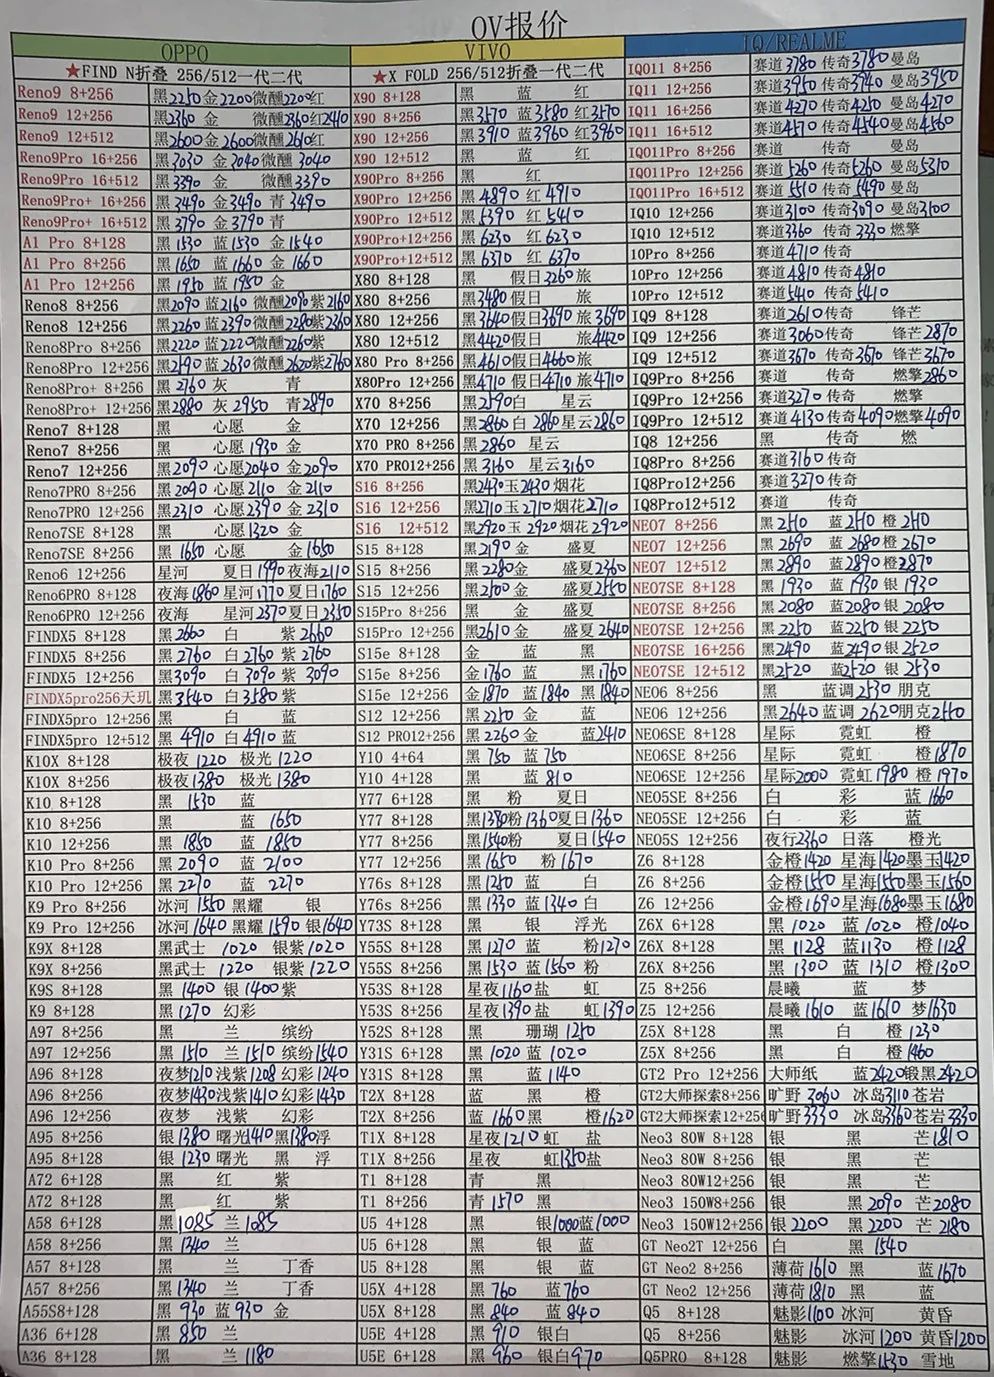 OV报价
OPPO VIVO IQ/REALME
★FIND N折叠 256/512一代二代 ★X FOLD 256/512折叠一代二代 IQ011 8+256 赛道3780 传奇3780曼岛
Reno9 8+256 黑2250金2200微醺2200红 X90 8+128 黑 蓝 红 IQ11 12+256 赛道3950 传奇3940 曼岛3950
Reno9 12+256 黑2360 金 微醺2360红2410 X90 8+256 黑3570 蓝3580 红3570 IQ11 16+256 赛道4270 传奇4250 曼岛4270
Reno9 12+512 黑2600金2600微醺2610红 X90 12+256 黑3910 蓝3960 红3960 IQ11 16+512 赛道4570 传奇4540曼岛4560
Reno9Pro 16+256 黑3030 金3040微醺3040 X90 12+512 黑 蓝 红 IQ011Pro 8+256 赛道 传奇 曼岛
Reno9Pro 16+512 黑3390 金 微醺3390 X90Pro 8+256 黑 红 IQ011Pro 12+256 赛道5260传奇5260 曼岛5310
Reno9Pro+ 16+256 黑3490 金3490 青3490 X90Pro 12+256 黑4890 红4910 IQ011Pro 16+512 赛道5510 传奇5490 曼岛
Reno9Pro+ 16+512 黑3790 金3790 青 X90Pro 12+512 黑5390 红5410 IQ10 12+256 赛道3100 传奇3090 曼岛3100
A1 Pro 8+128 黑1530 蓝1530 金1540 X90Pro+12+256 黑6230 红6230 IQ10 12+512 赛道3360 传奇3330 燃擎
A1 Pro 8+256 黑1650 蓝1660 金1660 X90Pro+12+512 黑6370 红6370 10Pro 8+256 赛道4710传奇
A1 Pro 12+256 黑1950 蓝1950 金 X80 8+128 黑 假日3260旅 10Pro 12+256 赛道4810 传奇4810
Reno8 8+256 黑2090 蓝2160 微醺2090紫2160 X80 8+256 黑3480假日 旅 10Pro 12+512 赛道5410 传奇5410
Reno8 12+256 黑2260 蓝2390微醺2280紫2360 X80 12+256 黑3640假日3690 旅3690 IQ9 8+128 赛道2610传奇 锋芒
Reno8Pro 8+256 黑2220 蓝2220微醺2260紫 X80 12+512 黑4420假日 旅4420 IQ9 12+256 赛道3060传奇 锋芒2870
Reno8Pro 12+256 黑2490 蓝2630 微醺2620紫2760 X80 Pro 8+256 黑4610假日4660旅 IQ9 12+512 赛道3670 传奇3670 锋芒3670
Reno8Pro+ 8+256 黑2760 灰 青 X80Pro 12+256 黑4710 假日4710 旅4710 IQ9Pro 8+256 赛道 传奇 燃擎2860
Reno8Pro+ 12+256 黑2880 灰2950 青2890 X70 8+256 黑2590白 星云 IQ9Pro 12+256 赛道3270传奇 燃擎
Reno7 8+128 黑 心愿 金 X70 12+256 黑2860白2860星云2860 IQ9Pro 12+512 赛道4130传奇4090燃擎4090
Reno7 8+256 黑 心愿1930 金 X70 PRO 8+256 黑2860 星云 IQ8 12+256 黑 传奇 燃
Reno7 12+256 黑2090 心愿2040 金2090 X70 PRO12+256 黑3160 星云3160 IQ8Pro 8+256 赛道3160传奇
Reno7PRO 8+256 黑2090 心愿2110 金2110 S16 8+256 黑2430玉2430烟花 IQ8Pro12+256 赛道3270传奇
Reno7PRO 12+256 黑2310 心愿2390 金2310 S16 12+256 黑2710玉2710烟花2710 IQ8Pro12+512 赛道 传奇
Reno7SE 8+128 黑 心愿1320 金 S16 12+512 黑2920玉2920烟花2920 NEO7 8+256 黑2510 蓝2510 橙2510
Reno7SE 8+256 黑1650 心愿 金1650 S15 8+128 黑2190 金 盛夏 NEO7 12+256 黑2690 蓝2680橙2670
Reno6 12+256 星河 夏日1990夜海2110 S15 8+256 黑2280金 盛夏2360 NEO7 12+512 黑2890 蓝2890橙2870
Reno6PRO 8+128 夜海1860星河1770夏日1760 S15 12+256 黑2500金 盛夏2550 NEO7SE 8+128 黑1930 蓝1930 银1930
Reno6PRO 12+256 夜海 星河2370夏日2350 S15Pro 8+256 黑 金 盛夏 NEO7SE 8+256 黑2080 蓝2080 银2080
FINDX5 8+128 黑2660 白 紫2660 S15Pro 12+256 黑2610 金 盛夏2640 NEO7SE 12+256 黑2250 蓝2250 银2250
FINDX5 8+256 黑2760 白2760 紫2760 S15e 8+128 金 蓝 黑 NEO7SE 16+256 黑2490 蓝2490银2520
FINDX5 12+256 黑3090 白3090 紫3090 S15e 8+256 金1760 蓝 黑1760 NEO7SE 12+512 黑2520 蓝2520 银2530
FINDX5pro256天玑 黑3540 白3580紫 S15e 12+256 金1870 蓝1840 黑1840 NEO6 8+256 黑 蓝调2530 朋克
FINDX5pro 12+256 黑 白 蓝 S12 12+256 黑2250 金 蓝 NEO6 12+256 黑2640蓝调2620朋克2510
FINDX5pro 12+512 黑4910 白4910蓝 S12 PRO12+256 黑2260金 蓝2410 NEO6SE 8+128 星际 霓虹 橙
K10X 8+128 极夜1220 极光1220 Y10 4+64 黑750 蓝750 NEO6SE 8+256 黑 霓虹 橙1870
K10X 8+256 极夜1380 极光1380 Y10 4+128 黑 蓝810 NEO6SE 12+256 星际2000 霓虹1980橙1970
K10 8+128 黑1530 蓝 Y77 6+128 黑 粉 夏日 NEO5SE 8+256 白 彩 蓝1660
K10 8+256 黑 蓝1650 Y77 8+128 黑1380粉1360夏日1360 NEO5SE 12+256 白 彩 蓝
K10 12+256 黑1850 蓝1850 Y77 8+256 黑1540粉 夏日1540 NEO5S 12+256 夜行2360 日落 橙光
K10 Pro 8+256 黑2090 蓝2100 Y77 12+256 黑1650 粉1670 Z6 8+128 金橙1420 星海1420墨玉1420
K10 Pro 12+256 黑2270 蓝2270 Y76s 8+128 黑1280 蓝 白 Z6 8+256 金橙1550 星海1550墨玉1560
K9 Pro 8+256 冰河1550黑耀 银 Y76s 8+256 黑1330 蓝1340白 Z6 12+256 金橙1690星海1680墨玉1680
K9 Pro 12+256 冰河1640黑耀1590 银1640 Y73S 8+128 黑 银 浮光 Z6X 6+128 黑1020 蓝1020 橙1040
K9X 8+128 黑武士 1020 银紫1020 Y55S 8+128 黑1270蓝 粉1270 Z6X 8+128 黑1128 蓝1130 橙1128
K9X 8+256 黑武士 1220 银紫1220 Y55S 8+256 黑1530蓝1560粉 Z6X 8+256 黑1300 蓝1310 橙1300
K9S 8+128 黑1400 银1400紫 Y53S 8+128 星夜1160盐 虹 Z5 8+256 晨曦 蓝 梦
K9 8+128 黑1270 幻彩 Y53S 8+256 星夜1390盐 虹1390 Z5 12+256 晨曦1610 蓝1610 梦1630
A97 8+256 黑 兰 缤纷 Y52S 8+128 黑 珊瑚1250 Z5X 8+128 黑 白 橙1230
A97 12+256 黑1510 兰1510缤纷1540 Y31S 6+128 黑1020蓝1020 Z5X 8+256 黑 白 橙1460
A96 8+128 夜梦1210浅紫1208幻彩1240 Y31S 8+128 黑 蓝1140 GT2 Pro 12+256 大师纸 蓝2420锻黑2420
A96 8+256 夜梦1430浅紫1410幻彩1430 T2X 8+128 蓝 黑 橙 GT2大师探索8+256 旷野3060 冰岛3110苍岩
A96 12+256 夜梦 浅紫 幻彩 T2X 8+256 蓝1660黑 橙1620 GT2大师探索12+256 旷野3330 冰岛3360苍岩3330
A95 8+256 银1380曙光1410黑1380浮 T1X 8+128 星夜1210虹 盐 Neo3 80W 8+128 银 黑 芒1810
A95 8+128 银1230曙光 黑 浮 T1X 8+256 星夜 虹1350盐 Neo3 80W 8+256 银 黑 芒
A72 6+128 黑 红 紫 T1 8+128 青 黑 Neo3 80W12+256 银 黑 芒
A72 8+128 黑 红 紫 T1 8+256 青1570黑 Neo3 150W8+256 银 黑2090 芒2080
A58 6+128 黑1085 兰1085 U5 4+128 黑 银1000蓝1000 Neo3 150W12+256 银2200 黑2200 芒2180
A58 8+256 黑1340 兰 U5 6+128 黑 银 蓝 GT Neo2T 12+256 白 黑1540
A57 8+128 黑 兰 丁香 U5 8+128 黑 银 蓝 GT Neo2 8+256 薄荷1610 黑 蓝1670
A57 8+256 黑1340 兰 丁香 U5X 4+128 黑760 蓝760 GT Neo2 12+256 薄荷1810 黑 蓝
A55S8+128 黑930 蓝930 金 U5X 8+128 黑840 蓝840 Q5 8+128 魅影1100冰河 黄昏
A36 6+128 黑850 兰 U5E 4+128 黑910 银白 Q5 8+256 魅影 冰河1200黄昏1200
A36 8+128 黑 兰1180 U5E 6+128 黑960 银白970 Q5PRO 8+128 魅影 燃擎1530 雪地